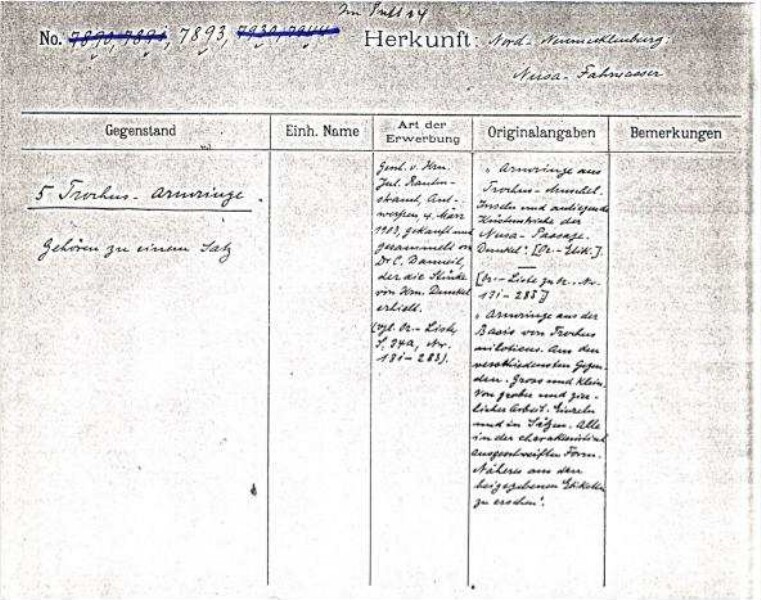 Im Pult 24
No. 7890, 7891, 7893, 7930, 7944 Herkunft: Nord-Neumecklenburg:
Nusa-Fahrwasser
Gegenstand Einh. Name Art der Erwerbung Originalangaben Bemerkungen
5 Trochus-Armringe.
Gehören zu einem Satz
Gesch. v. Hrn.
Jul. Rauten-
strauch, Ant-
werpen, 4. März
1903, gekauft und
gesammelt von
Dr C. Danneil,
der die Stücke
von Hrn. Dunkel
erhielt.
(vgl. Or.-Liste,
S. 34a, Nr.
181-283).
"Armringe aus
Trochus-Muschel.
Inseln und anliegende
Küstenstriche der
Nusa-Passage.
Dunkel". [Or.-Etik.].
[Or.-Liste zu Or.-Nr.
131-283]
"Armringe aus der
Basis von Trochus
niloticus. Aus den
verschiedensten Gegen-
den. Gross und klein.
Von grober und zier-
licher Arbeit. Einzeln
und in Sätzen. Alle
in der charakteristisch
ausgeschweiften Form.
Näheres aus den
beigegebenen Etiketten
zu ersehen".